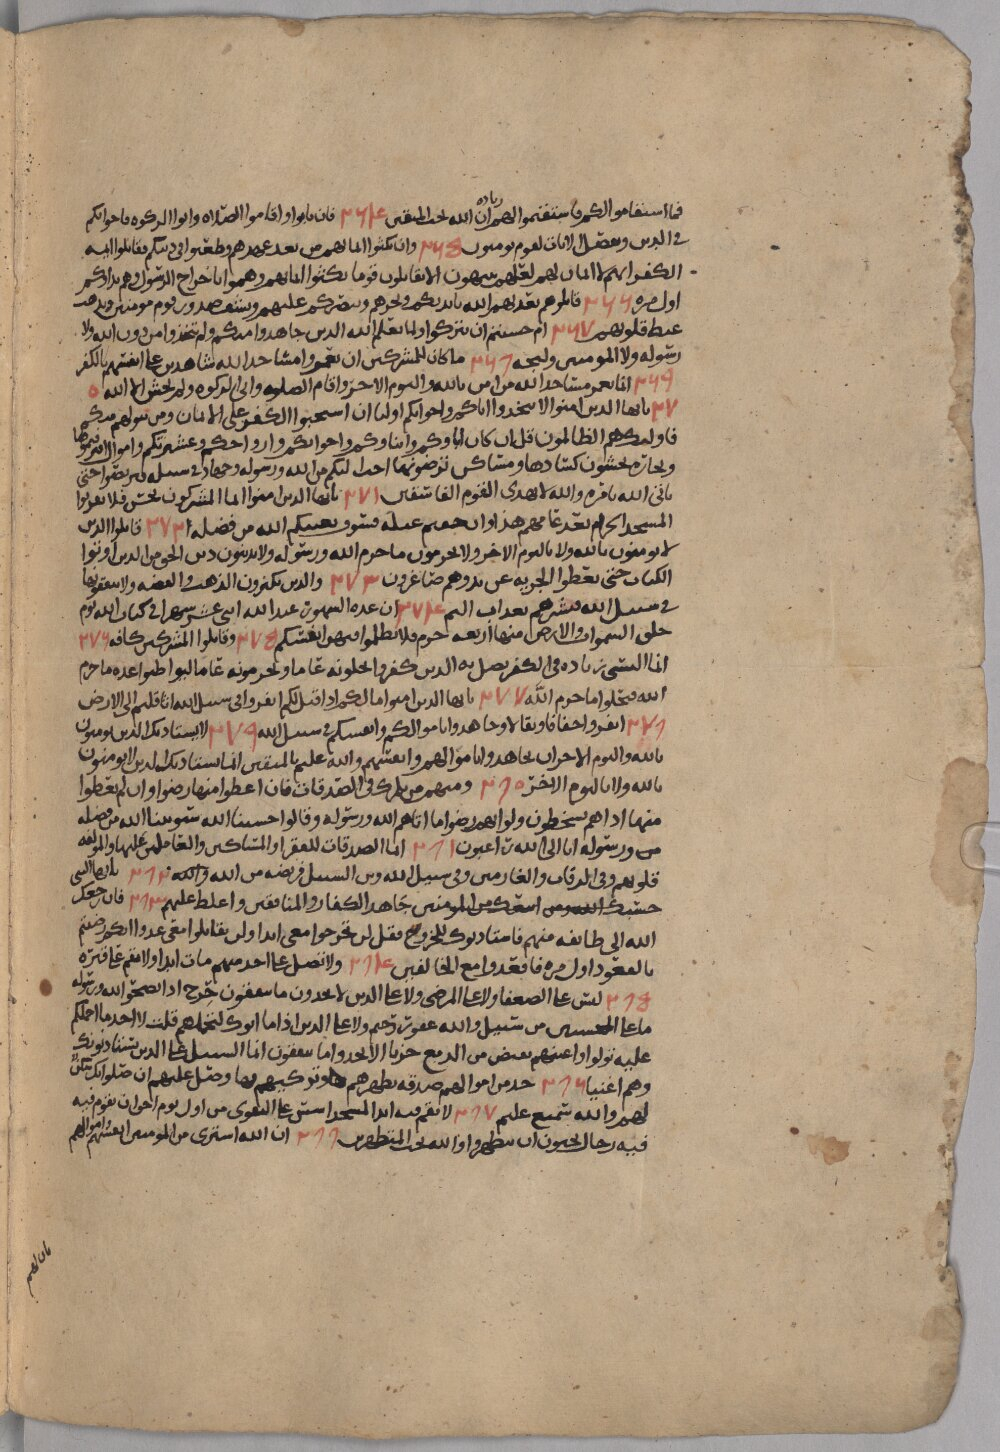 فما استقاموا لكم فاستقيموا لهم ان الله يحب المتقين ٢٦٤ فان تابوا واقاموا الصلاه واتوا الزكوه فاخوانكم
في الدين ونفصل الايات لقوم يومنون ٢٦٥ وان نكثوا ايمانهم من بعد عهدهم وطعنوا في دينكم فقاتلوا ايمه
الكفر انهم لا ايمان لهم لعلهم ينتهون الا تقاتلون قوما نكثوا ايمانهم وهموا باخراج الرسول وهم بداوكم
اول مره ٢٦٦ قاتلوهم يعذبهم الله بايديكم ويخزهم وينصركم عليهم ويشف صدور قوم مومنين ويذهب
غيظ قلوبهم ٢٦٧ ام حسبتم ان تتركوا ولما يعلم الله الذين جاهدوا منكم ولم يتخذوا من دون الله ولا
رسوله ولا المومنين وليجه ٢٦٨ ما كان للمشركين ان يعمروا مساجد الله شاهدين على انفسهم بالكفر
٢٦٩ انما يعمر مساجد الله من امن بالله واليوم الاخر واقام الصلوه واتى الزكوه ولم يخش الا الله ٥
٢٧ يايها الذين امنوا لا تتخذوا اباكم واخوانكم اوليا ان استحبوا الكفر على الايمان ومن يتولهم منكم
فاوليك هم الظالمون قل ان كان اباوكم وابناوكم واخوانكم وازواجكم وعشيرتكم واموال اقترفتموها
وتجاره تخشون كسادها ومساكن ترضونها احب اليكم من الله ورسوله وجهاد في سبيله فتربصوا حتى
ياتى الله بامره والله لا يهدى القوم الفاسقين ٢٧١ يايها الذين امنوا انما المشركون نجس فلا يقربوا
المسجد الحرام بعد عامهم هذا وان خفتم عيله فسوف يغنيكم الله من فضله ٢٧٢ قاتلوا الذين
لا يومنون بالله ولا باليوم الاخر ولا يحرمون ما حرم الله ورسوله ولا يدينون دين الحق من الذين اوتوا
الكتاب حتى يعطوا الجزيه عن يد وهم صاغرون ٢٧٣ والذين يكنزون الذهب والفضه ولا ينفقونها
في سبيل الله فبشرهم بعذاب اليم ٢٧٤ ان عده الشهور عند الله اثنى عشر شهرا في كتاب الله يوم
خلق السموات والارض منها اربعه حرم فلا تظلموا فيهن انفسكم ٢٧٥ وقاتلوا المشركين كافه ٢٧٦
انما النسي زياده في الكفر يضل به الذين كفروا يحلونه عاما ويحرمونه عاما ليواطيوا عده ما حرم
الله فيحلوا ما حرم الله ٢٧٧ يايها الذين امنوا ما لكم اذا قيل لكم انفروا في سبيل الله اثاقلتم الى الارض
٢٧٨ انفروا خفافا وثقالا وجاهدوا باموالكم وانفسكم في سبيل الله ٢٧٩ لا يستاذنك الذين يومنون
بالله واليوم الاخر ان يجاهدوا باموالهم وانفسهم والله عليم بالمتقين انما يستاذنك الذين لا يومنون
بالله ولا باليوم الاخر ٢٨٥ ومنهم من يلمزك في الصدقات فان اعطوا منها رضوا وان لم يعطوا
منها اذا هم يسخطون ولو انهم رضوا ما اتاهم الله ورسوله وقالوا حسبنا الله سيوتينا الله من فضله
من ورسوله انا الى الله راغبون ٢٨١ انما الصدقات للفقرا والمساكين والعاملين عليها والمولفه
قلوبهم وفي الرقاب والغارمين وفي سبيل الله وبن السبيل فريضه من الله والله ٢٨٢ يايها النبى
حسبك الله ومن اتبعك من المومنين جاهد الكفار والمنافقين واغلظ عليهم ٢٨٣ فان رجعك
الله الى طائفه منهم فاستاذنوك للخروج فقل لن تخرجوا معى ابدا ولن تقاتلوا معى عدوا انكم رضيتم
بالقعود اول مره فاقعدوا مع الخالفين ٢٨٤ ولا تصل على احد منهم مات ابدا ولا تقم على قبره
٢٨٥ ليس على الضعفا ولا على المرضى ولا على الذين لا يجدون ما ينفقون حرج اذا نصحوا لله ورسوله
ما على المحسنين من سبيل والله غفور رحيم ولا على الذين اذا ما اتوك لتحملهم قلت لا اجد ما احملكم
عليه تولوا واعينهم تفيض من الدمع حزنا الا يجدوا ما ينفقون انما السبيل على الذين يستاذنونك
وهم اغنيا ٢٨٦ خذ من اموالهم صدقه تطهرهم وتزكيهم بها وصل عليهم ان صلواتك سكن
لهم والله سميع عليم ٢٨٧ لا تقم فيه ابدا لمسجد اسس على التقوى من اول يوم احق ان تقوم فيه
فيه رجال يحبون ان يتطهروا والله يحب المتطهرين ٢٨٨ ان الله اشترى من المومنين انفسهم واموالهم
بان لهم